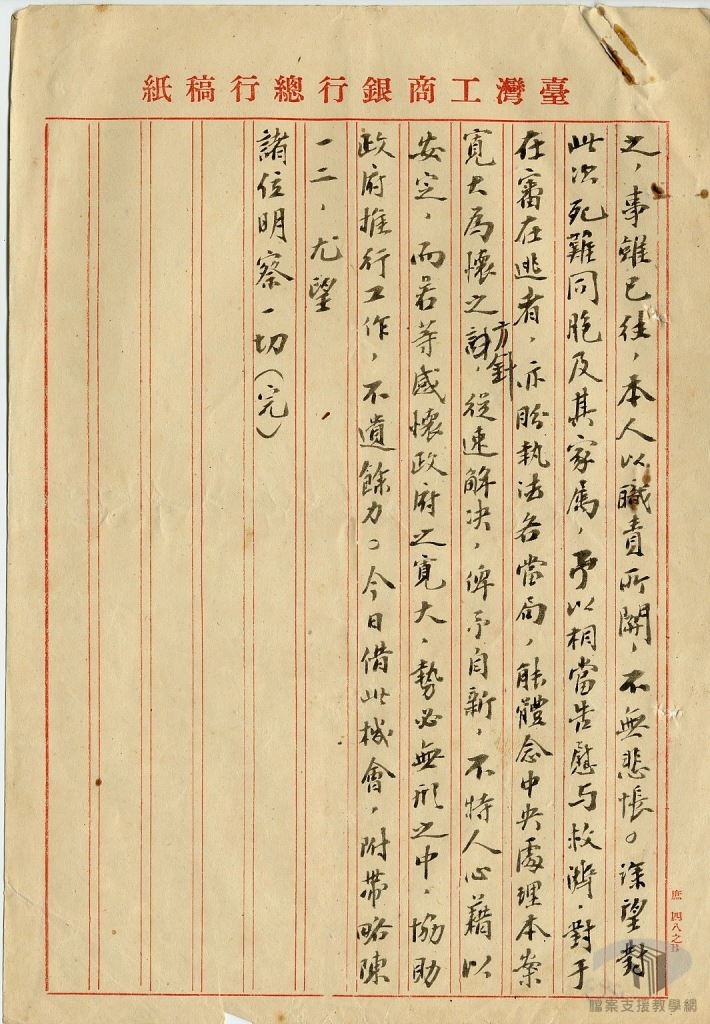 臺灣工商銀行總行稿紙
之，事雖已往，本人以職責所關，不無悲悵。深望對
此次死難同胞及其家屬，予以相當告慰与救濟，對于
在審在逃者，亦盼執法各當局，能體念中央處理本案
寬大為懷之方針，從速解決，俾予自新，不特人心藉以
安定，而若等感懷政府之寬大，勢必無形之中，協助
政府推行工作，不遺餘力。今日借此機會，附帶略陳
一二，尤望
諸位明察一切（完）
庶 四八之
檔案支援教學網